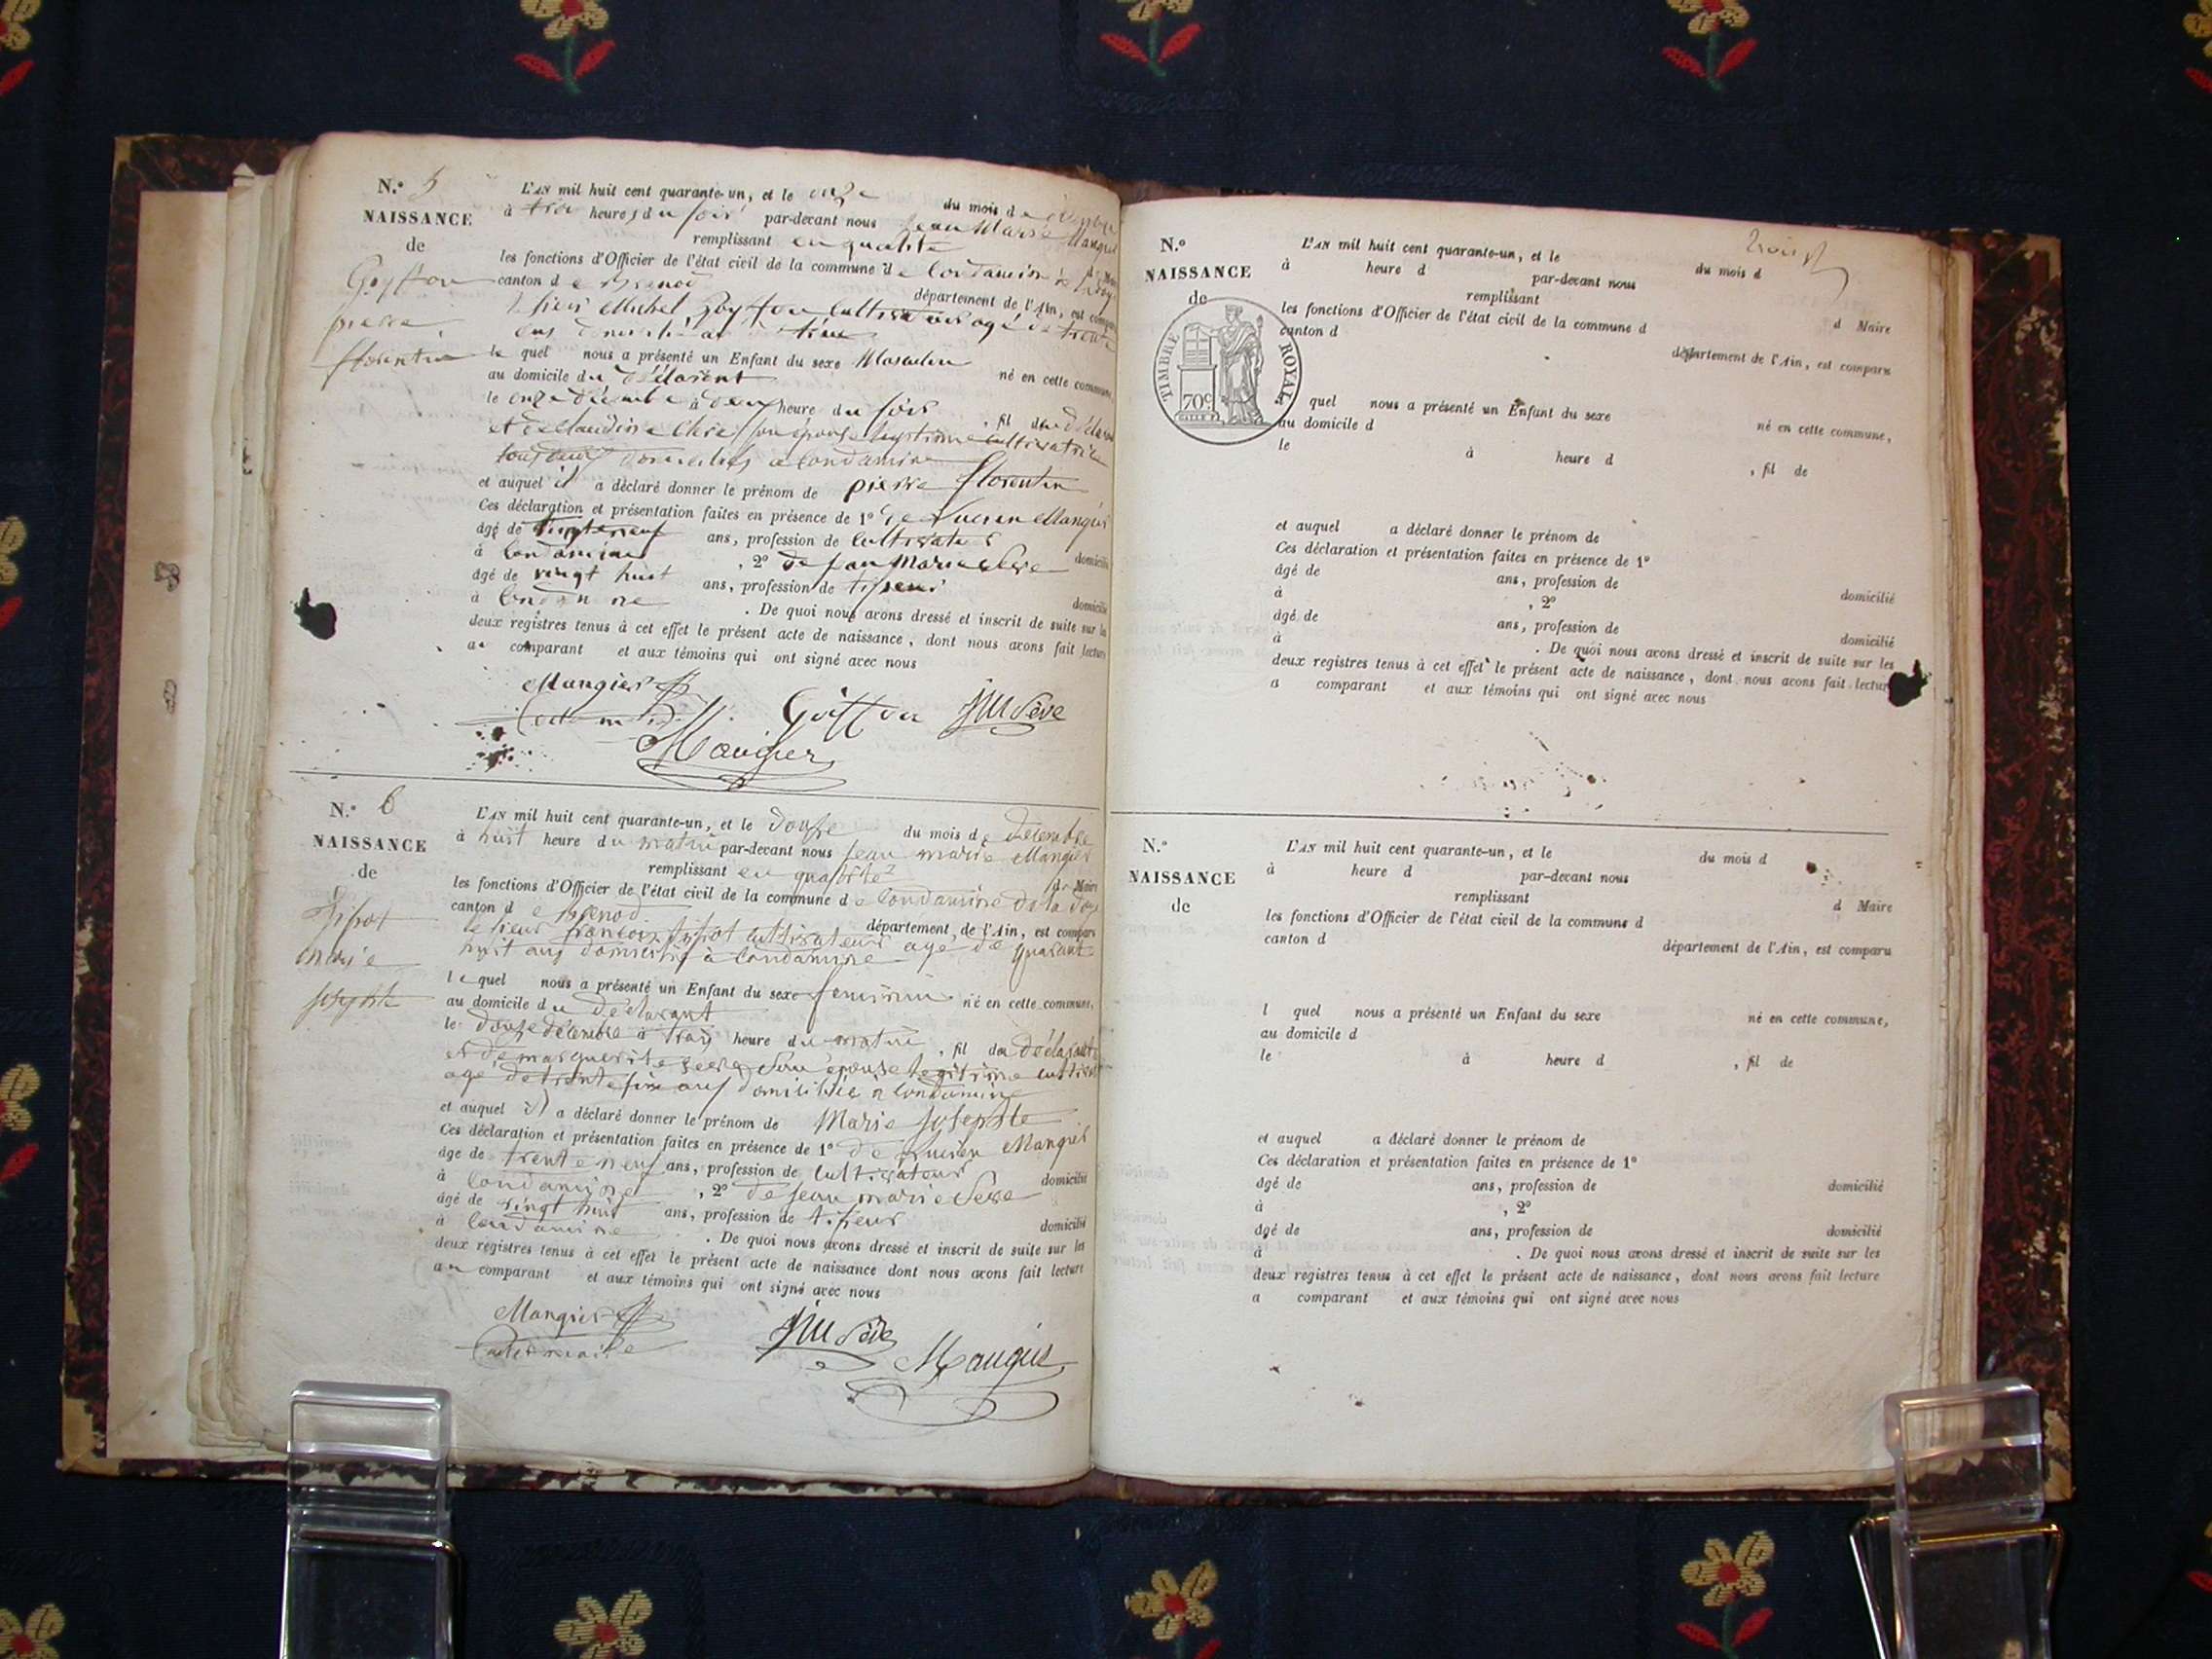 N.° 5
NAISSANCE
de
Goyffon
pierre
florentin
L'AN mil huit cent quarante-un, et le onze du mois de décembre
à trois heures du soir par-devant nous Jean Marie Mangier
remplissant en qualité d Maire
les fonctions d'Officier de l'état civil de la commune de Condamine de la Doye
canton de Brenod département de l'Ain, est comparu
le sieur Michel Goyffon cultivateur agé de trente
ans domicilié
le quel nous a présenté un Enfant du sexe Masculin né en cette commune,
au domicile du déclarent
le onze décembre à deux heure du soir, fil du déclarent
et de Claudine son épouse legitime cultivatrice
tous deux domiciliés a Condamine
et auquel il a déclaré donner le prénom de pierre florentin
Ces déclaration et présentation faites en présence de 1° de Lucien Mangier
âgé de ans, profession de Cultivateur domicilié
à Condamine, 2° de Jean Marie Seve
âgé de vingt huit ans, profession de tisseur domicilié
à Condamine. De quoi nous avons dressé et inscrit de suite sur les
deux registres tenus à cet effet le présent acte de naissance, dont nous avons fait lecture
au comparant et aux témoins qui ont signé avec nous
Mangier
Goiffon JM Sève
Mangier
N.° 6
NAISSANCE
de
Tissot
marie
josephte
L'AN mil huit cent quarante-un, et le douse du mois de décembre
à huit heure du matin par-devant nous jean marie Mangier
remplissant en qualité d Maire
les fonctions d'Officier de l'état civil de la commune de Condamine de la Doye
canton de Brenod département de l'Ain, est comparu
le sieur françois tissot cultivateur age de quarante
huit ans domicilié à Condamine
le quel nous a présenté un Enfant du sexe feminin né en cette commune,
au domicile du déclarant
le douse décembre à trois heure du matin, fil du déclarant
et de marguerite Seve son épouse legitime
age de trente six ans domiciliée a Condamine
et auquel il a déclaré donner le prénom de Marie Josephte
Ces déclaration et présentation faites en présence de 1° de Lucien Mangier
âge de trente neuf ans, profession de Cultivateur domicilié
à Condamine, 2° de Jean marie Seve
âgé de vingt huit ans, profession de tisseur domicilié
à Condamine. De quoi nous avons dressé et inscrit de suite sur les
deux registres tenus à cet effet le présent acte de naissance dont nous avons fait lecture
au comparant et aux témoins qui ont signé avec nous
Mangier JM Sève
Mangier
N.°
NAISSANCE
de
TIMBRE ROYAL
70c
L'AN mil huit cent quarante-un, et le du mois d
à heure d par-devant nous
remplissant d Maire
les fonctions d'Officier de l'état civil de la commune d
canton d département de l'Ain, est comparu
quel nous a présenté un Enfant du sexe né en cette commune,
au domicile d
le à heure d , fil de
et auquel a déclaré donner le prénom de
Ces déclaration et présentation faites en présence de 1°
âgé de ans, profession de domicilié
à , 2°
âgé de ans, profession de domicilié
à . De quoi nous avons dressé et inscrit de suite sur les
deux registres tenus à cet effet le présent acte de naissance, dont nous avons fait lecture
a comparant et aux témoins qui ont signé avec nous
N.°
NAISSANCE
de
L'AN mil huit cent quarante-un, et le du mois d
à heure d par-devant nous
remplissant d Maire
les fonctions d'Officier de l'état civil de la commune d
canton d département de l'Ain, est comparu
l quel nous a présenté un Enfant du sexe né en cette commune,
au domicile d
le à heure d , fil de
et auquel a déclaré donner le prénom de
Ces déclaration et présentation faites en présence de 1°
âgé de ans, profession de domicilié
à , 2°
âgé de ans, profession de domicilié
à . De quoi nous avons dressé et inscrit de suite sur les
deux registres tenus à cet effet le présent acte de naissance, dont nous avons fait lecture
a comparant et aux témoins qui ont signé avec nous